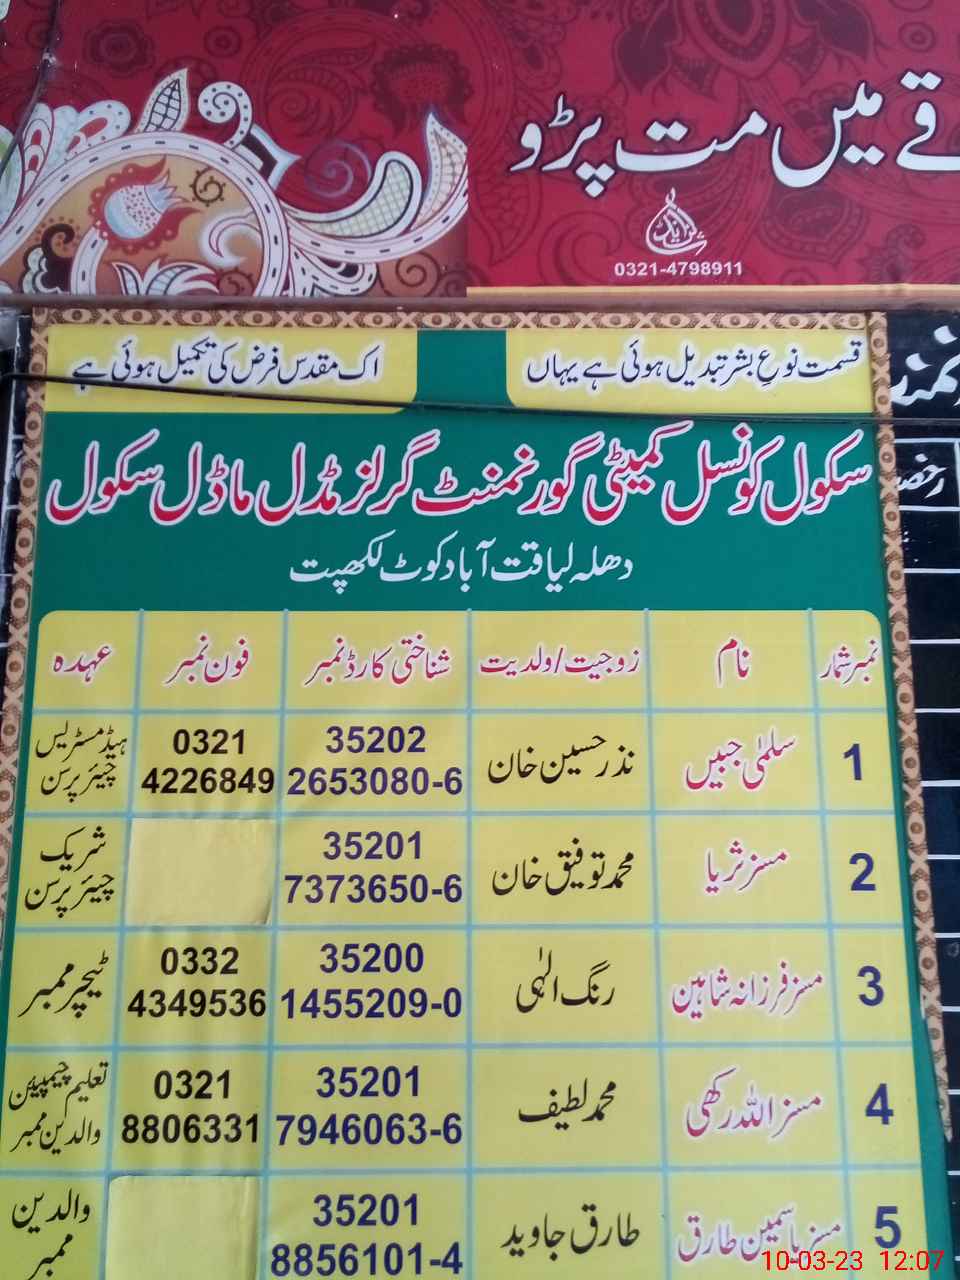 قے میں مت پڑو
گرافکس
0321-4798911
قسمت نوعِ بشر تبدیل ہوئی ہے یہاں
اک مقدس فرض کی تکمیل ہوئی ہے
نمبر
رخصت
سکول کونسل کمیٹی گورنمنٹ گرلز مڈل ماڈل سکول
دھلہ لیاقت آباد کوٹ لکھپت
نمبر شمار نام زوجیت/ولدیت شناختی کارڈ نمبر فون نمبر عہدہ
1 سلمیٰ جبیں نذر حسین خان 35202 2653080-6 0321 4226849 ہیڈ مسٹریس چیئر پرسن
2 مسز ثریا محمد توفیق خان 35201 7373650-6 شریک چیئر پرسن
3 مسز فرزانہ شاہین رنگ الٰہی 35200 1455209-0 0332 4349536 ٹیچر ممبر
4 مسز اللہ رکھی محمد لطیف 35201 7946063-6 0321 8806331 تعلیم چیمپیئن والدین ممبر
5 مسز یاسمین طارق طارق جاوید 35201 8856101-4 والدین ممبر
10-03-23 12:07